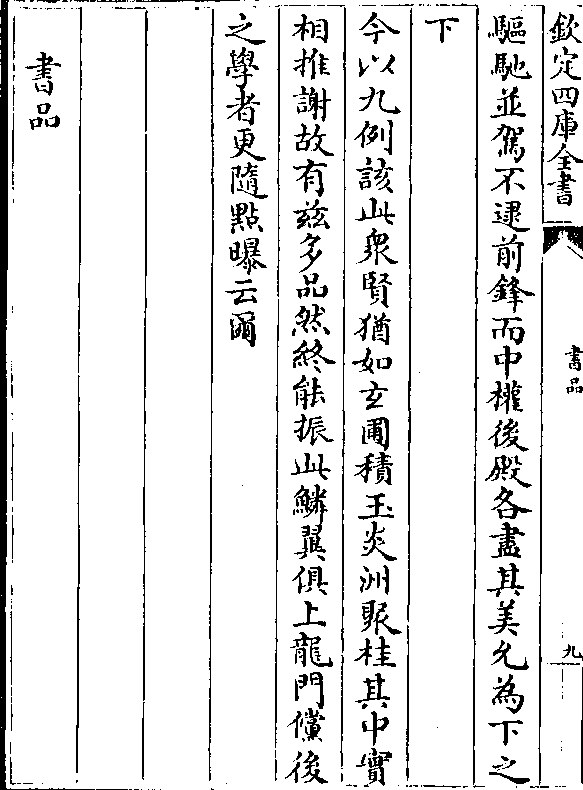 欽定四庫全書
書品
九
驅馳並駕不逮前鋒而中權後殿各盡其美允為下之
下
今以九例該此衆賢猶如玄圃積玉炎洲聚桂其中實
相推謝故有兹多品然終能振此鱗翼俱上龍門儻後
之學者更隨點曝云爾
書品